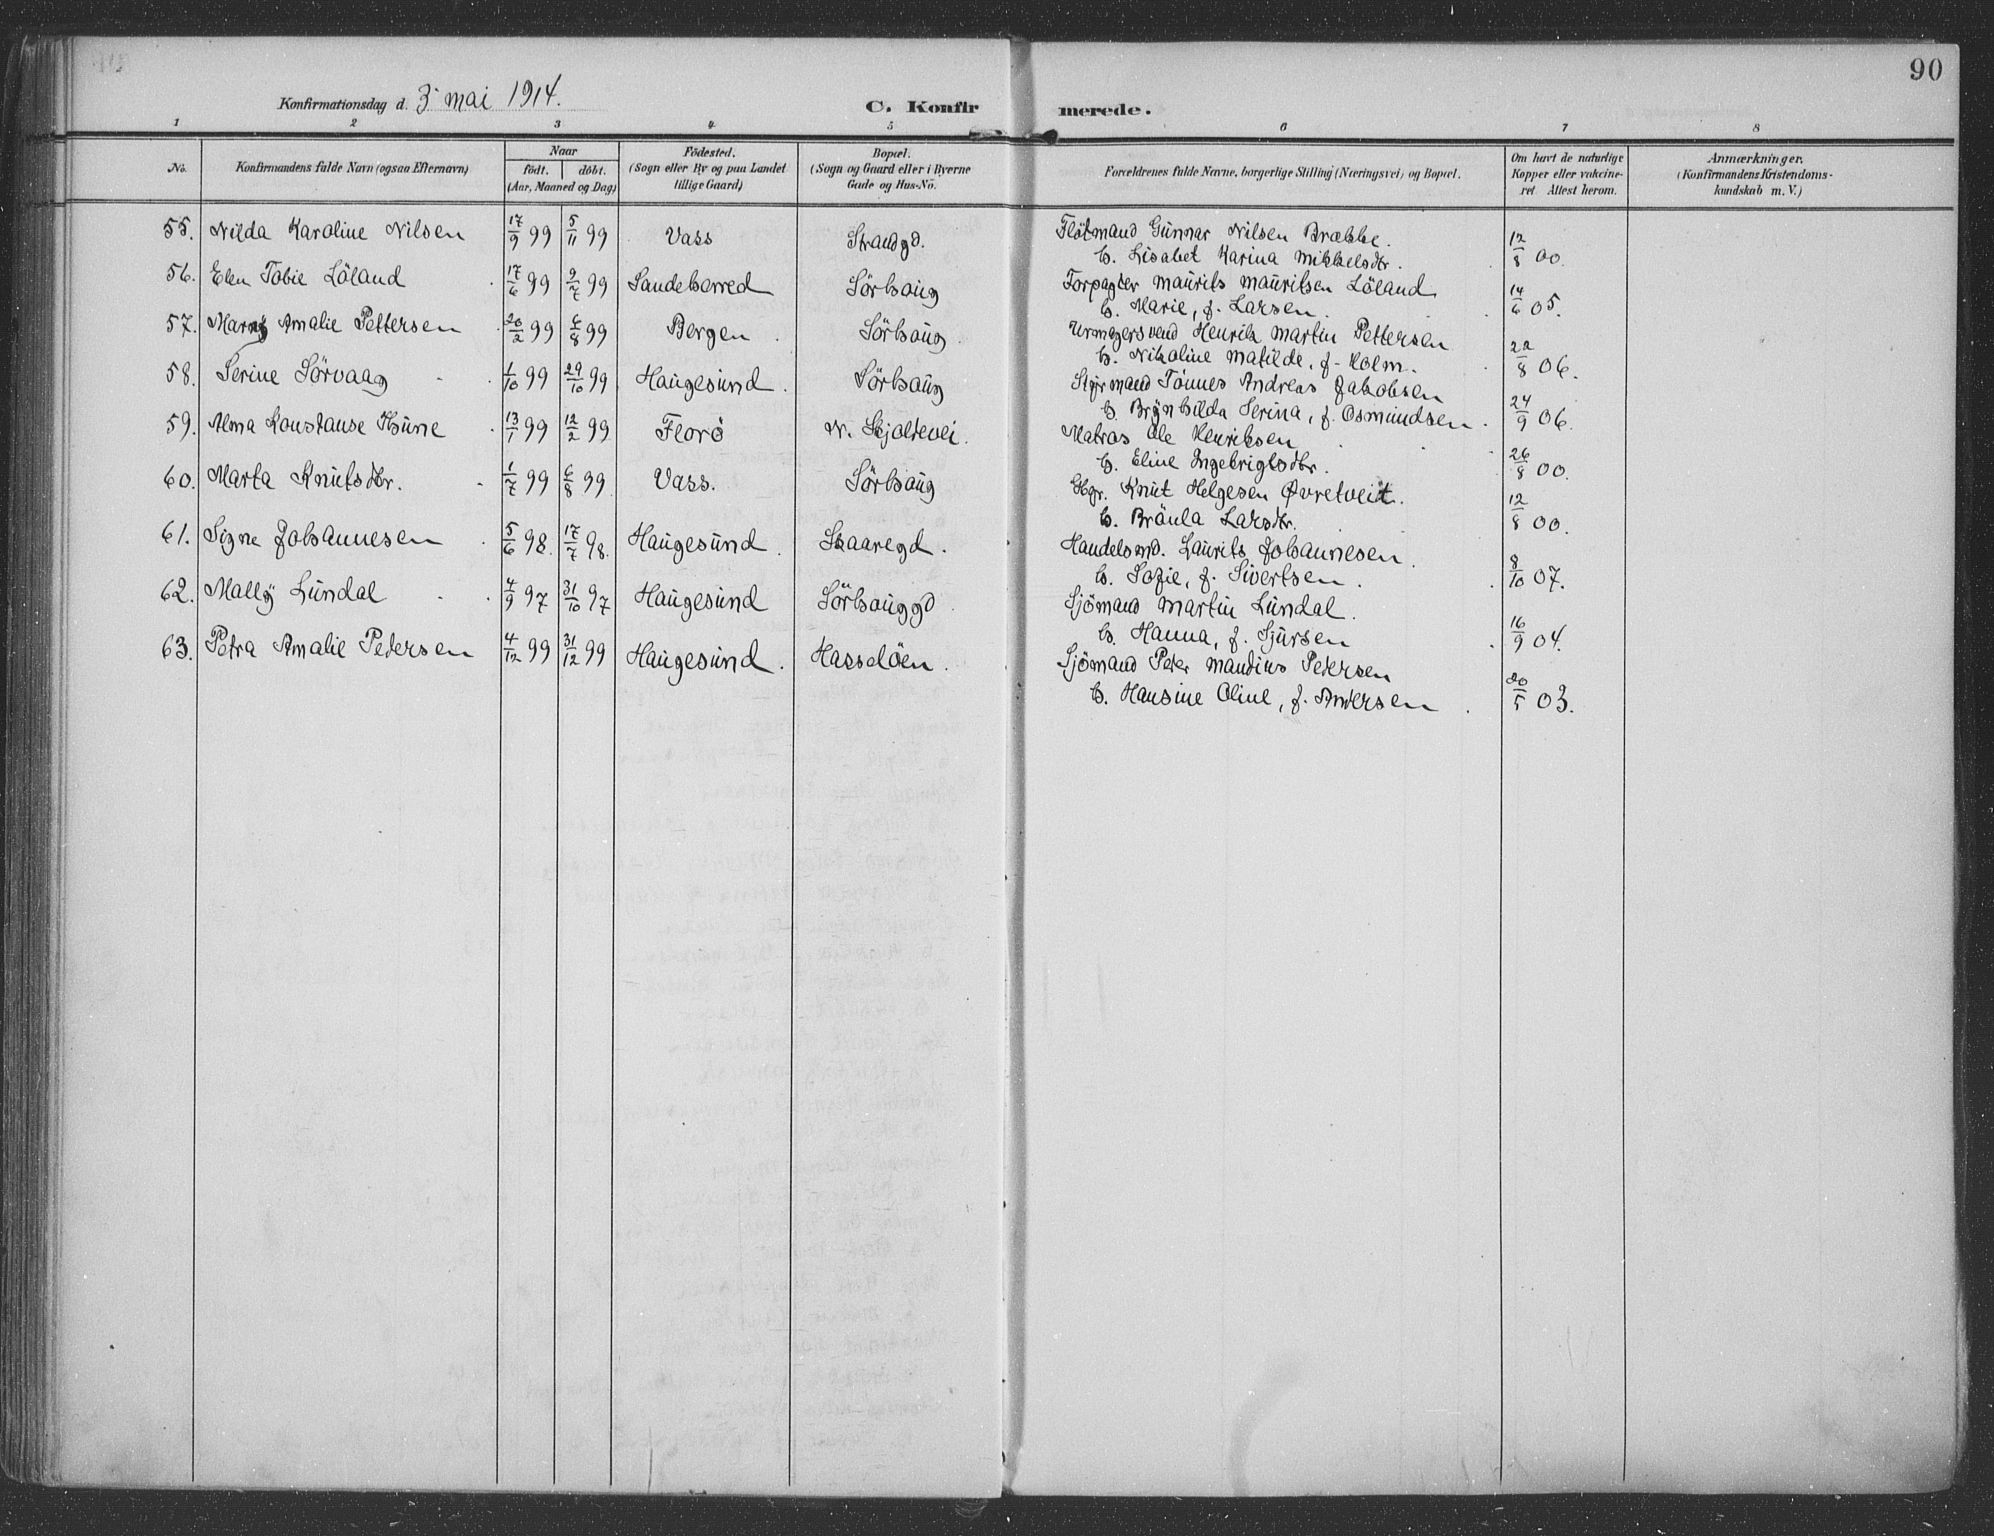 90
Konfirmationsdag d. 3 mai 1914.
C. Konfirmerede.
1 2 3 4 5 6 7 8
No. | Konfirmandens fulde Navn (ogsaa Efternavn) | Naar födt. döbt. (Aar, Maaned og Dag) | Födested. (Sogn eller By og paa Landet tillige Gaard) | Bopæl. (Sogn og Gaard eller i Byerne Gade og Hus-No. | Forældrenes fulde Navne, borgerlige Stilling (Næringsvei) og Bopæl. | Om havt de naturlige Kopper eller vakcineret. Attest herom. | Anmærkninger. (Konfirmandens Kristendomskundskab m. V.)
55. Nilda Karoline Nilsen 17/9 99 5/11 99 Vass Strandgd. Flötmand Gunnar Nilsen Brække. 12/8 00.
h. Lisabet Karina Mikkelsdtr.
56. Elen Tobie Löland 17/6 99 9/7 99 Sandeherred Sörhaug Forpagter Maurits Mauritsen Löland 14/6 05.
h. Marie, f. Larsen.
57. Marny Amalie Pettersen 20/2 99 6/8 99 Bergen Sörhaug Urmagersvend Henrik Martin Pettersen 22/8 06.
h. Nikoline Matilde, f. Holm.
58. Serine Sörvaag 1/10 99 29/10 99 Haugesund Sörhaug Styrmand Tönnes Andreas Jakobsen 24/9 06.
h. Brynhilda Serina, f. Osmundsen.
59. Alma Konstanse Hüne 13/1 99 12/2 99 Florö N. Skjoldevei. Matros Ole Henriksen 26/8 00.
h. Eline Ingebrigtsdtr.
60. Marta Knutsdtr. 1/7 99 6/8 99 Vass. Sörhaug Hgr. Knut Helgesen Øvretveit. 12/8 00.
h. Bräula Larsdtr.
61. Signe Johannesen 5/6 98. 17/7 98. Haugesund Skaaregd. Handelsmd. Laurits Johannesen 8/10 07.
h. Sofie, f. Sivertsen.
62. Mally Lundal 4/9 97 31/10 97 Haugesund Sörhauggd Sjömand Martin Lundal. 16/9 04.
h. Hanna, f. Sjursen
63. Petra Amalie Pedersen 4/12 99 31/12 99 Haugesund. Hasselöen. Sjömand Peter Mandius Petersen 20/5 03.
h. Hansine Oline, f. Andersen